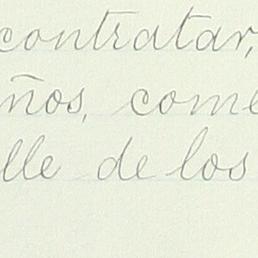 contratar,
ños, come
lle de los